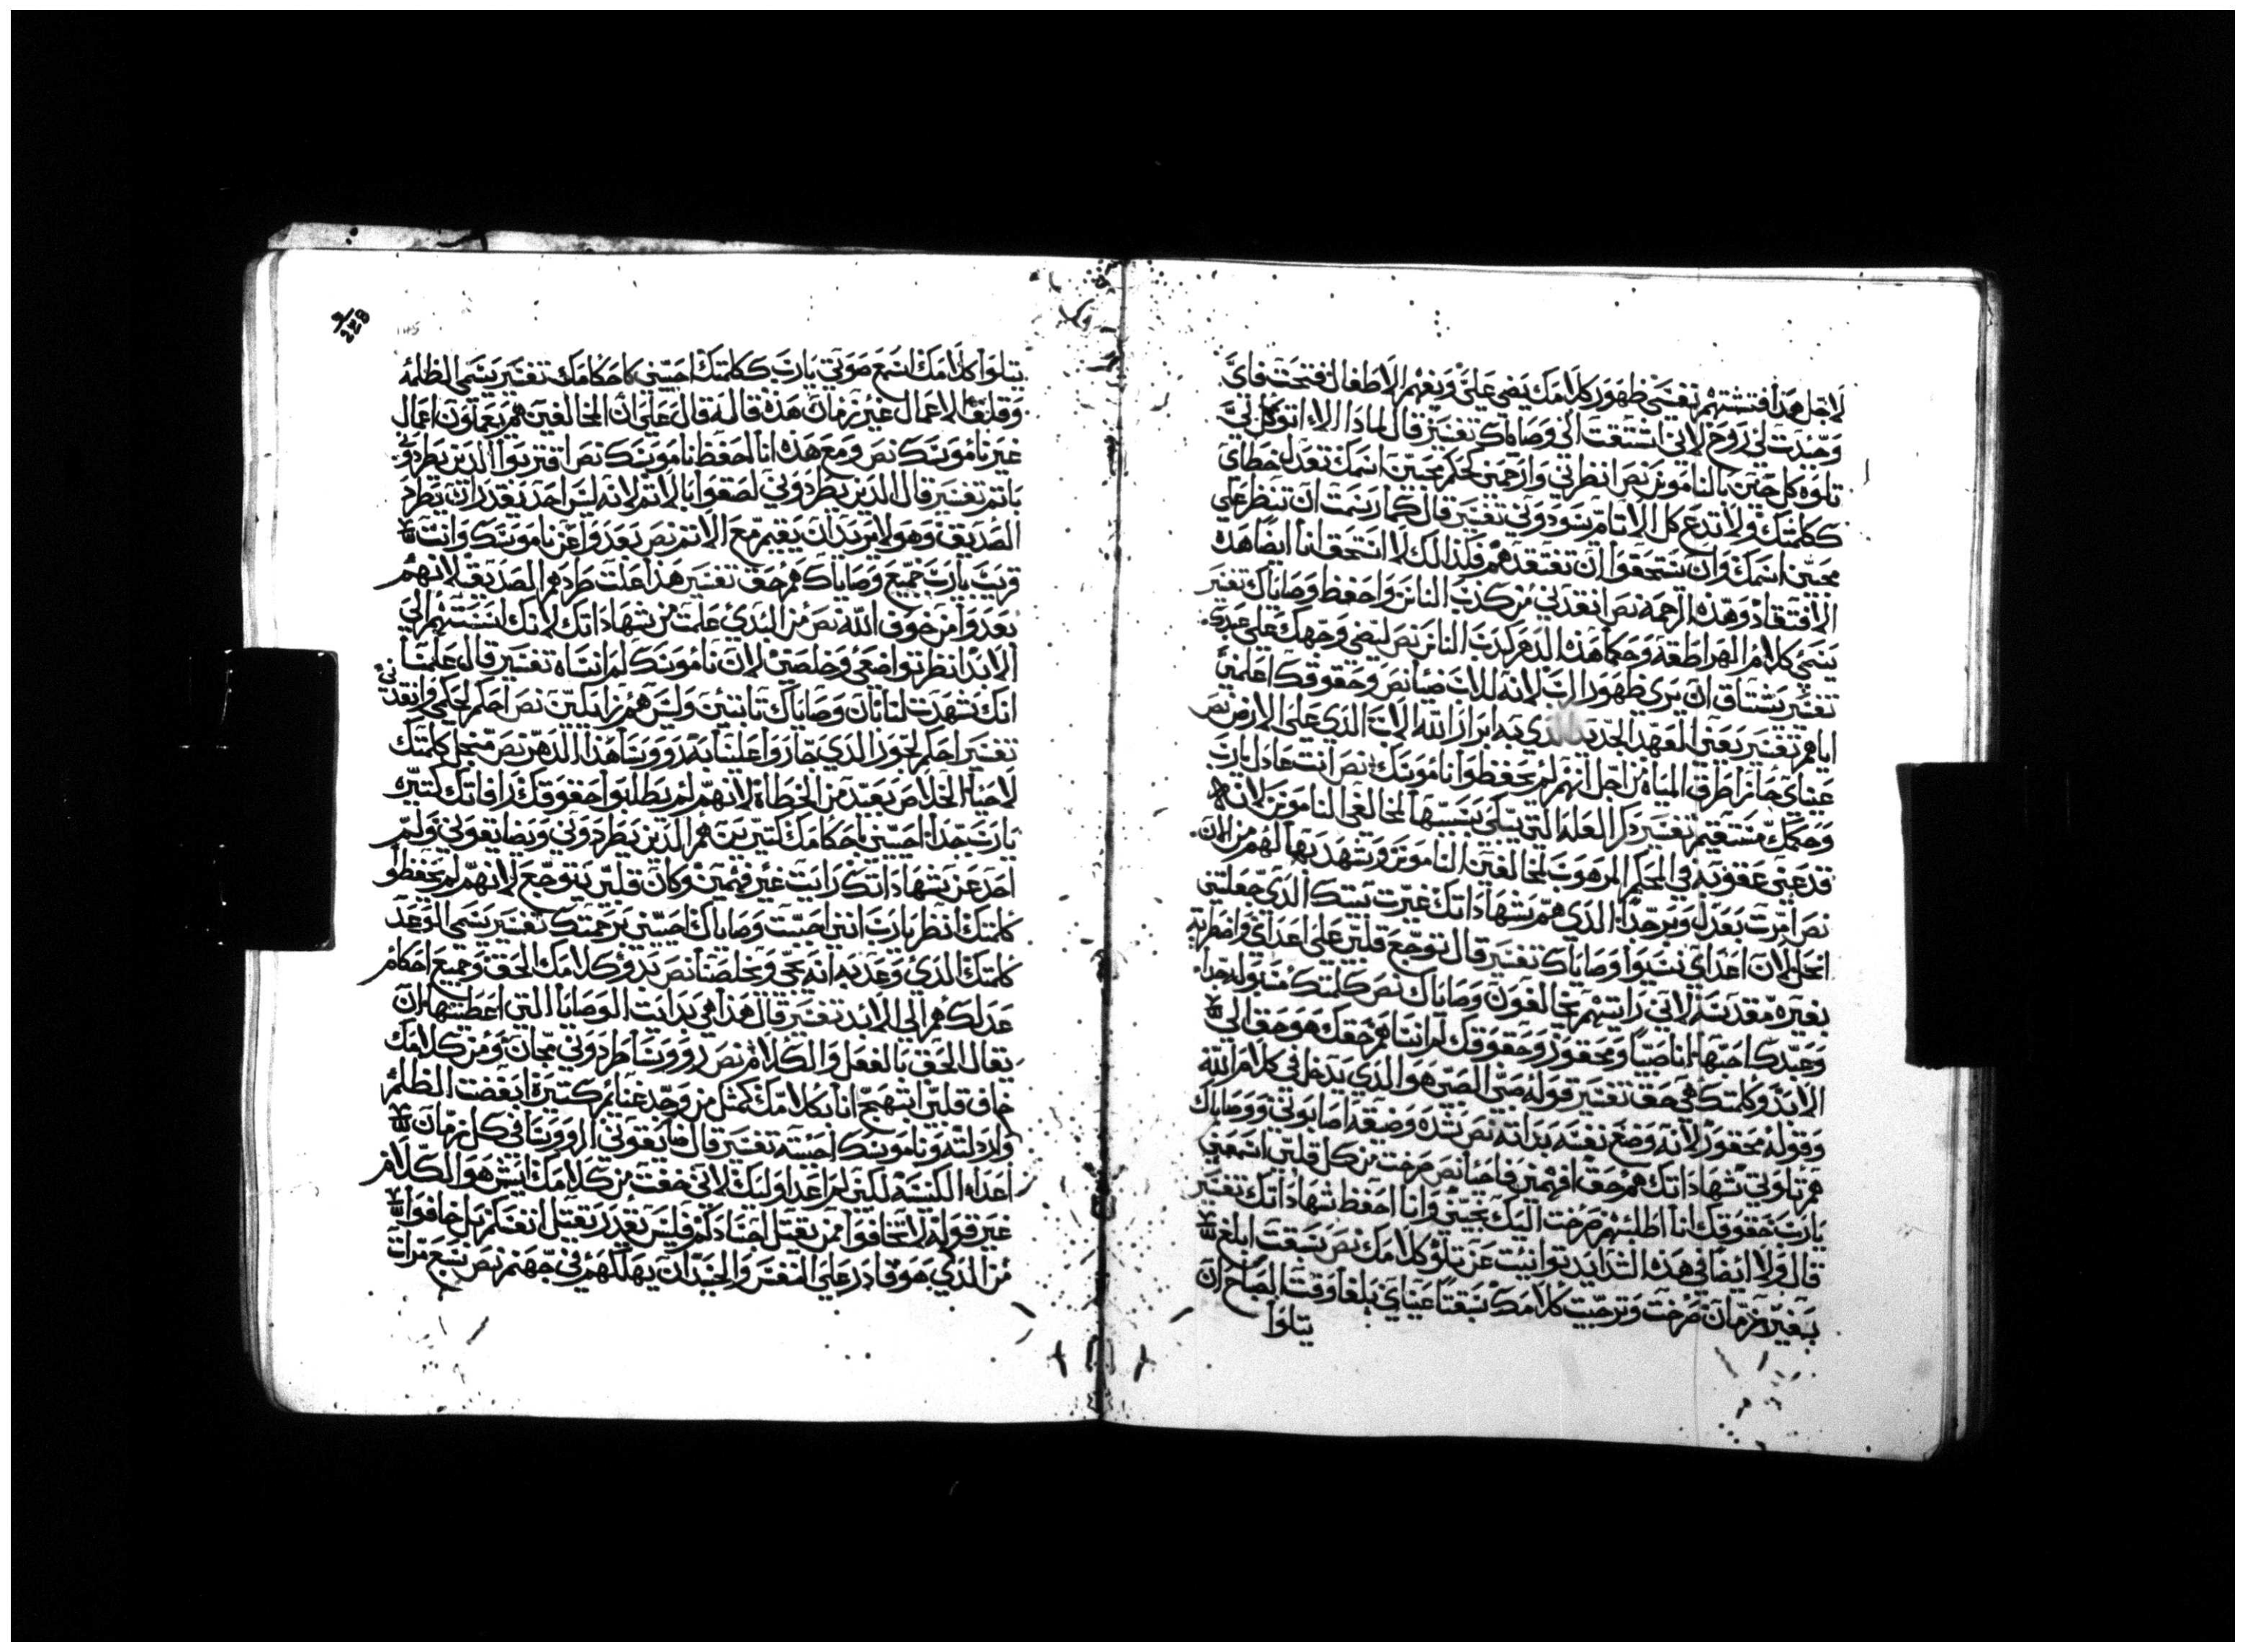 لاجل هذا فتشتهم تفسير ظهور كلامك يضي علي ويفهم الاطفال فتحت فاي
وجدت لي روح لاني اشتقت الي وصاياك تفسير قال لماذا الا اتوكل لي
تلوه كل حين بالناموس نص انظر الي وارحمني كحكم محبين اسمك تعدل خطاي
ككلمتك ولا تدع كل الاتام تسودوني تفسير قال كما رسمت ان تنظر علي
محبين اسمك وان تستحقوا ان تفتقدهم فلذلك لا استحق انا ايضا هذه
الافتقاد وهذه الرحمه نص انقدني من كذب الناس واحفظ وصاياك تفسير
يسمي كلام الهراطقه وحكما هذا الدهر كذب الناس نص ليضي وجهك علي عبدك
تفسير يشتاق ان يري ظهور الرب لانه للاب ضيا نص وحقوقك اعلمني
اياهم تفسير يعني العهد الجديد الذي به ابراز الله الاب الذي علي الارض نص
عيناي جازا طرق المياه من اجل انهم لم يحفظوا ناموسك نص انت عادل يارب
وحكمك مستقيم تفسير ذكر العله التي يبكي بسببها لمخالفي الناموس لان
قد عني عقوبه في الحكم المرهوب لمخالفين الناموس ويشهد بها لهم من الان
نص امرت بعدل وبر جدا الذي هم شهاداتك غيرت بيتك الذي جعلتني
انحل لان اعداي نسيوا وصاياك تفسير قال توجع قلبي علي اعداي واضطر به
بغيره مقدسه لاني رايتهم يخالفون وصاياك نص كلمتك مسبوله جدا
وعبدك احبها انا صبيا ومحقور وحقوقك لم انساهم حقك هو حق الي
الابد وكلمتك هي حق تفسير قوله صبي الصبي هو الذي يدخل في كلام الله
وقوله محقور لانه وضع نفسه بذاته نص شده وضيقه اصابوني ووصاياك
هم تلاوتي شهاداتك هم حق افهمني فاحيا نص صرخت من كل قلبي اسمعني
يارب حقوقك انا اطلبهم صرخت اليك نجيني وانا احفظ شهاداتك تفسير
قال ولا ايضا في هذه الشدايد توانيت عن تلو كلامك نص سبقت ابلغ
بغير زمان صرخت وترجيت كلامك سبقتا عيناي يبلغا وقت الصباح ان
يتلوا
229
يتلوا كلامك اسمع صوتي يارب ككلمتك احييني كاحكامك تفسير يسمي الظلمه
وقلق الاعمال غير زمان هذه قاله قال علي ان المخالفين هم يعملون اعمال
غير ناموسك نص ومع هذه انا احفظ ناموسك نص اقتربوا الذين يطردوني
باتم تفسير قال الذين يطردوني لصقوا بالاتم لانه ليس احد يقدر ان يطرد
الصديق وهو لا يريد ان يقيم مع الاتم نص بعدوا عن ناموسك وانت
قريب يارب جميع وصاياك هم حق تفسير هذا علت طردهم الصديق لانهم
بعدوا من خوف الله نص من البدي علمت من شهاداتك لانك اسستهم الي
الابد انظر تواضعي وخلصني لان ناموسك لم انساه تفسير قال علمنا
انك شهدت لنا بان وصاياك تابتين وليس هم زايلين نص احكم لحكمي وانقدني
تفسير احكم لجور الذي جازوا علينا به روسا هذا الدهر نص من اجل كلمتك
لاحيا الخلاص بعيد من الخطاه لانهم لم يطلبوا حقوقك رافاتك كتيره
يارب جدا احييني باحكامك كتيرين هم الذين يطردوني ويضايقوني ولم
احد عن شهاداتك رايت غير فهمين وكان قلبي يتوجع لانهم لم يحفظوا
كلمتك انظر يارب انني احببت وصاياك احييني برحمتك تفسير يسمي الوعد
كلمتك الذي وعد به انه يجي ويخلصنا نص بدو كلامك الحق وجميع احكام
عدلك هم الي الابد تفسير قال هذا هي بدايت الوصايا التي اعطيتها ان
يقال الحق بالفعل والكلام نص روسا طردوني مجان ومن كلامك
خاف قلبي ابتهج انا بكلامك كمثل من وجد غنايم كتيره ابغضت الظلم
وارذلته وناموسك احببته تفسير قال ضايقوني الروسا في كل زمان
اعدا الكنيسه لكني لم اعد اوليك لاني خفت من كلامك ايش هو الكلام
غير قوله لا تخافوا ممن يقتل اجسادكم وليس يقدر يقتل انفسكم بل خافوا
من الذي هو قادر علي النفس والجسد ان يهلكهم في جهنم نص سبع مرات